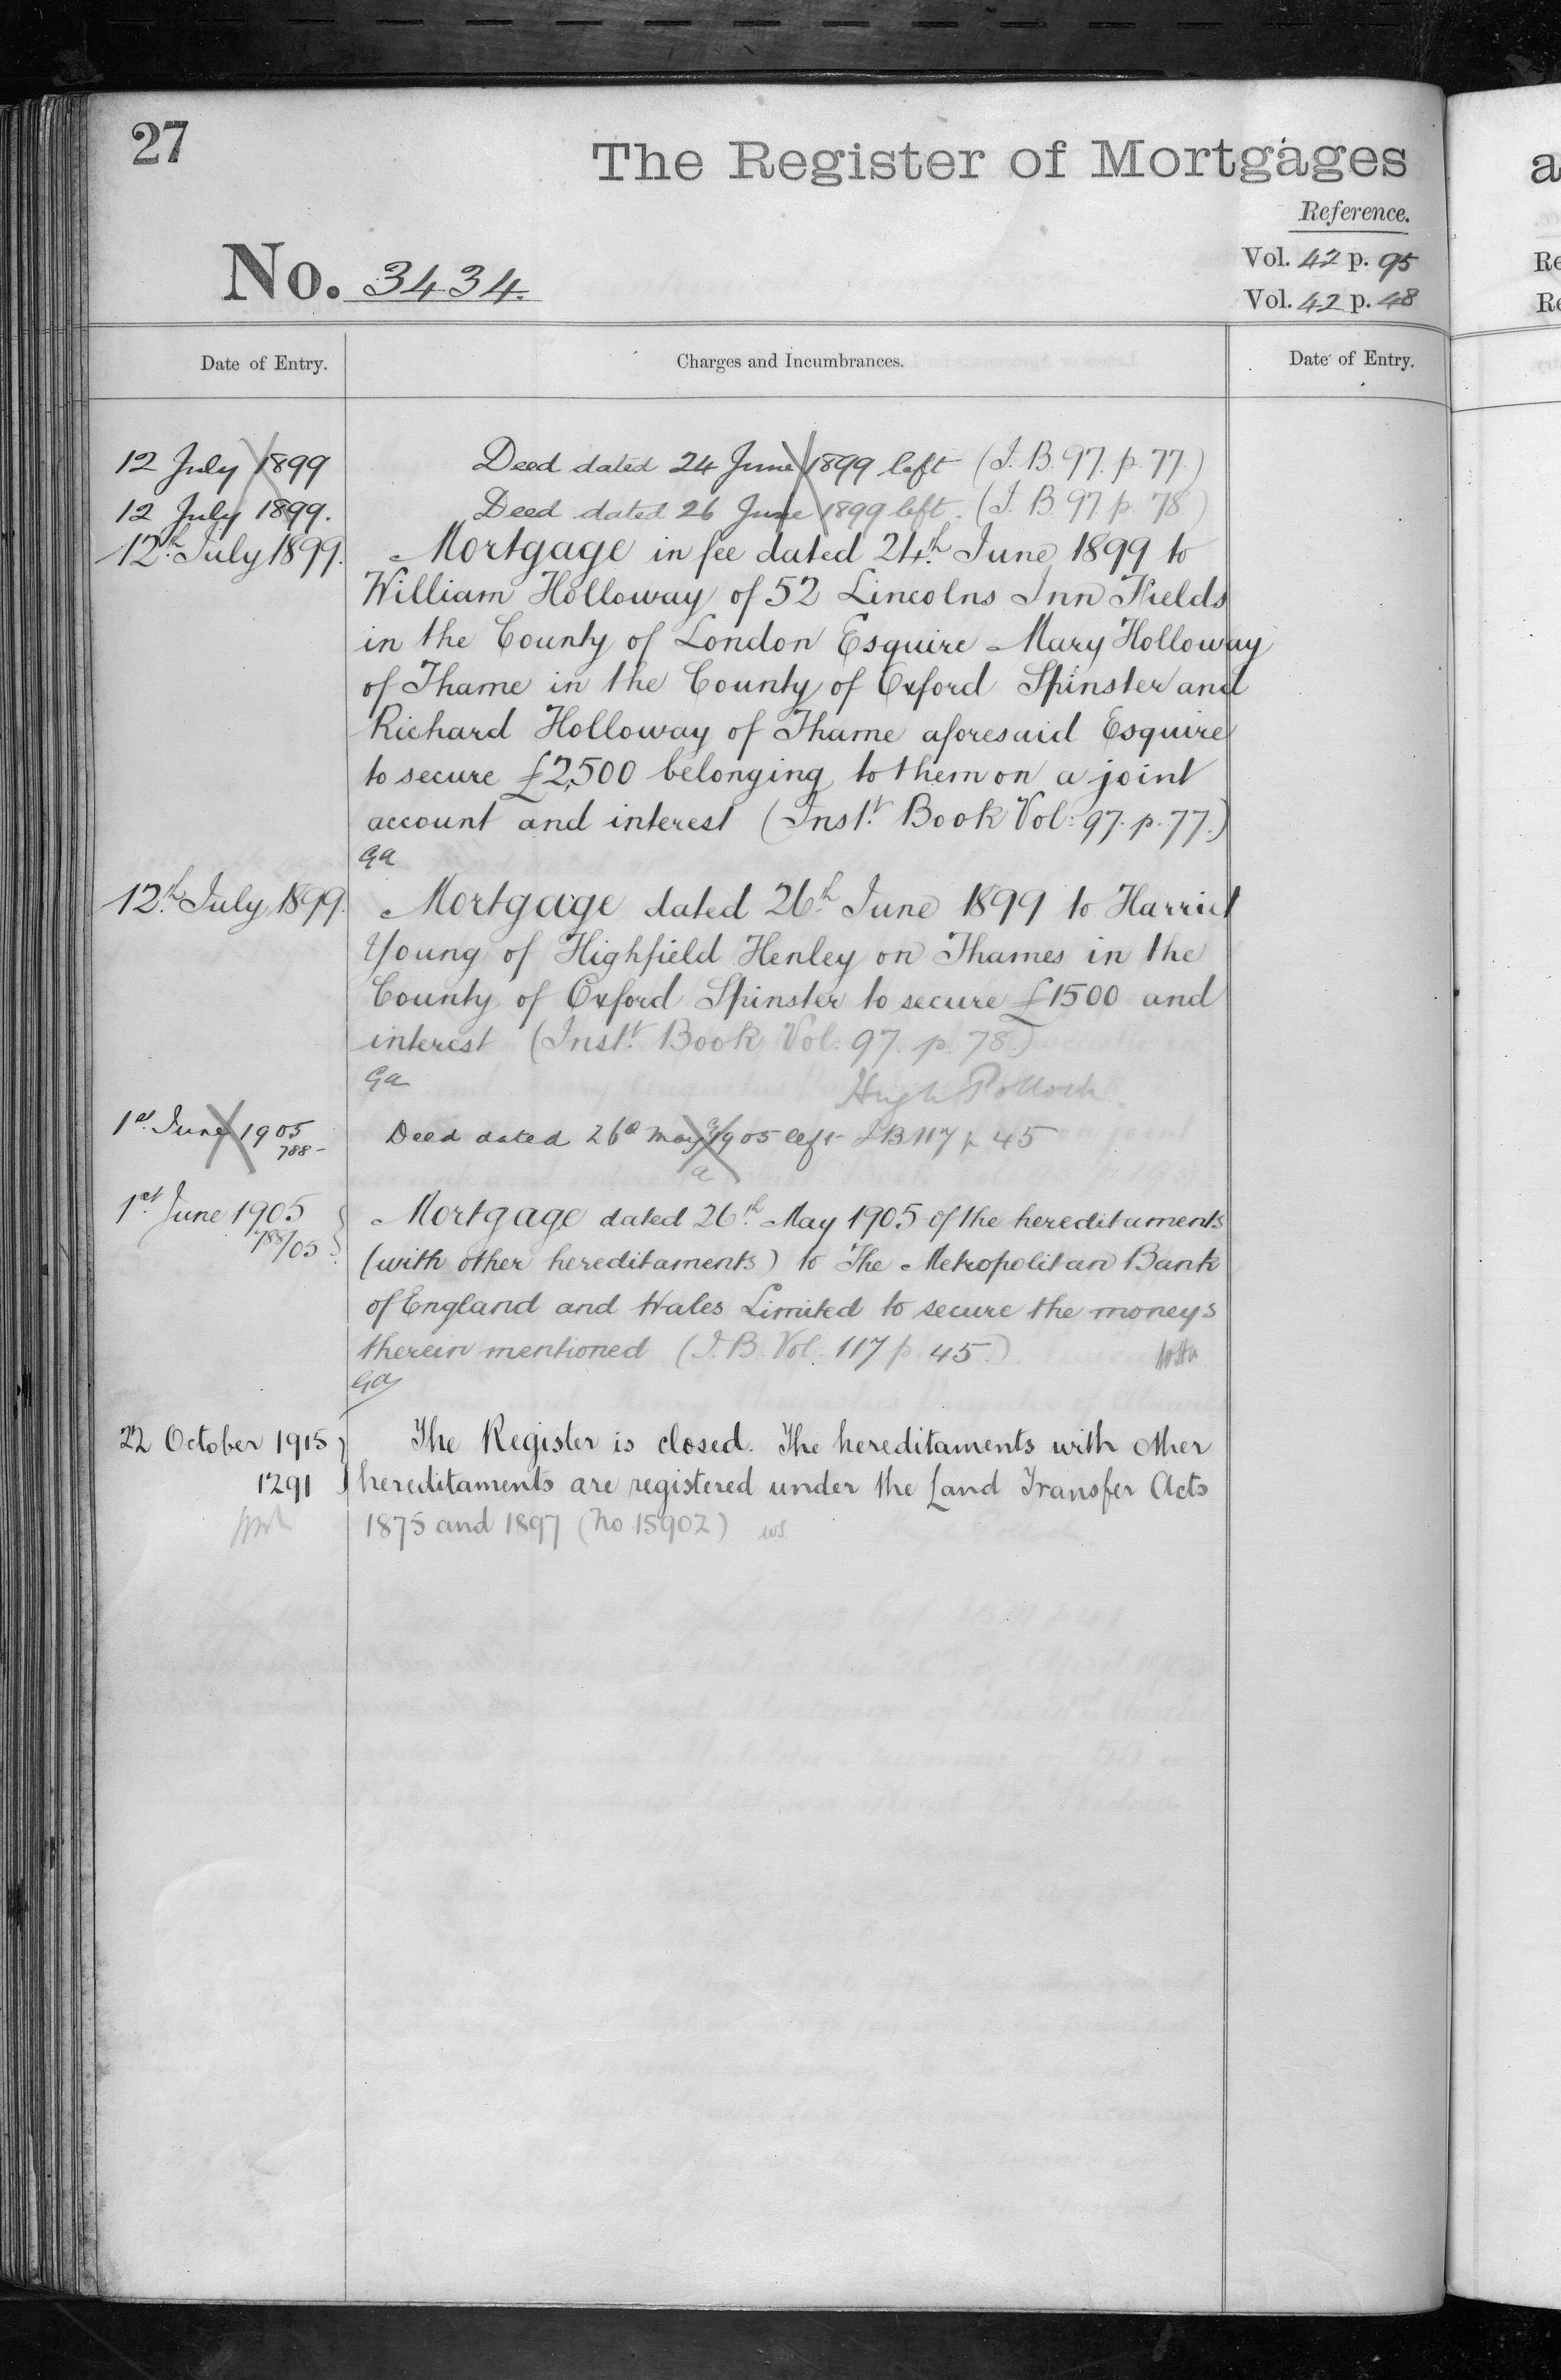 27
The Register of Mortgages
Reference.
No. 3434.
Vol. 42 p. 95
Vol. 42 p. 48
Date of Entry. Charges and Incumbrances. Date of Entry.
12 July 1899 Deed dated 24 June 1899 left (I. B. 97. p. 77.)
12 July 1899. Deed dated 26 June 1899 left. (I. B. 97. p. 78)
12th July 1899. Mortgage in fee dated 24th June 1899 to
William Holloway of 52 Lincolns Inn Fields
in the County of London Esquire Mary Holloway
of Thame in the County of Oxford Spinster and
Richard Holloway of Thame aforesaid Esquire
to secure £2,500 belonging to them on a joint
account and interest (Inst.t Book Vol: 97. p. 77.)
Ga
12th July 1899. Mortgage dated 26th June 1899 to Harriet
Young of Highfield Henley on Thames in the
County of Oxford Spinster to secure £1500 and
interest (Inst.t Book Vol. 97. p. 78.)
Ga Hugh Pollock
1st June 1905 Deed dated 26th May 1905 left I B 117 p 45
788
1st June 1905 Mortgage dated 26th May 1905 of the hereditaments
788/05 (with other hereditaments) to The Metropolitan Bank
of England and Wales Limited to secure the moneys
therein mentioned (I. B. Vol. 117 p. 45.)
Ga
22 October 1915 The Register is closed. The hereditaments with other
1291 hereditaments are registered under the Land Transfer Acts
1875 and 1897 (No 15902) ws
a
Re
Re